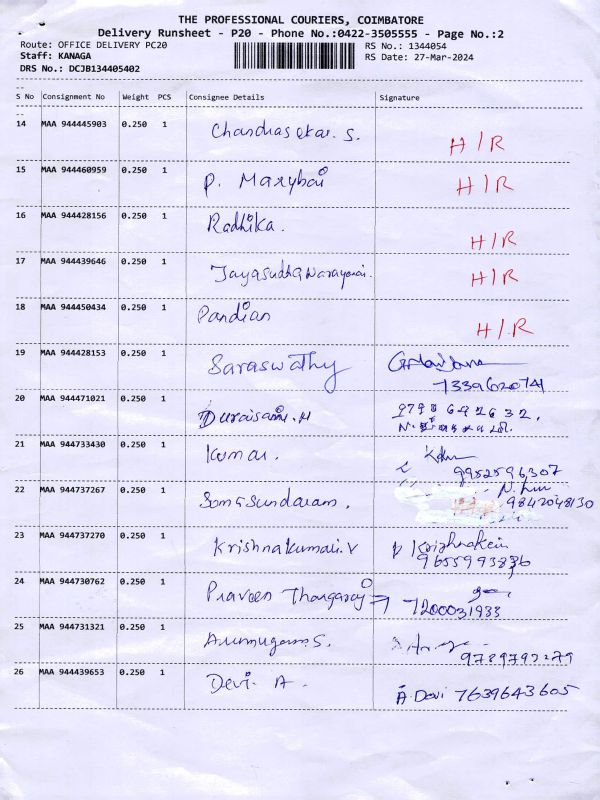 THE PROFESSIONAL COURIERS, COIMBATORE
Delivery Runsheet - P20 - Phone No.:0422-3505555 - Page No.:2
Route: OFFICE DELIVERY PC20 RS No.: 1344054
Staff: KANAGA RS Date: 27-Mar-2024
DRS No.: DCJB134405402
S No Consignment No Weight PCS Consignee Details Signature
14 MAA 944445903 0.250 1 Chandrasekar. S. H/R
15 MAA 944460959 0.250 1 P. Marybai H/R
16 MAA 944428156 0.250 1 Radhika. H/R
17 MAA 944439646 0.250 1 Jayasudha Narayanan. H/R
18 MAA 944450434 0.250 1 Pandian H/R
19 MAA 944428153 0.250 1 Saraswathy
7339620741
20 MAA 944471021 0.250 1 Duraisami. M 9798692632.
21 MAA 944733430 0.250 1 Kumar.
9952596307
22 MAA 944737267 0.250 1 Somasundaram.
9842048130
23 MAA 944737270 0.250 1 Krishnakumari. V
9655993836
24 MAA 944730762 0.250 1 Praveen Thangaraj
7200031933
25 MAA 944731321 0.250 1 Arumugam S.
9789792279
26 MAA 944439653 0.250 1 Devi. A. A. Devi 7639643605